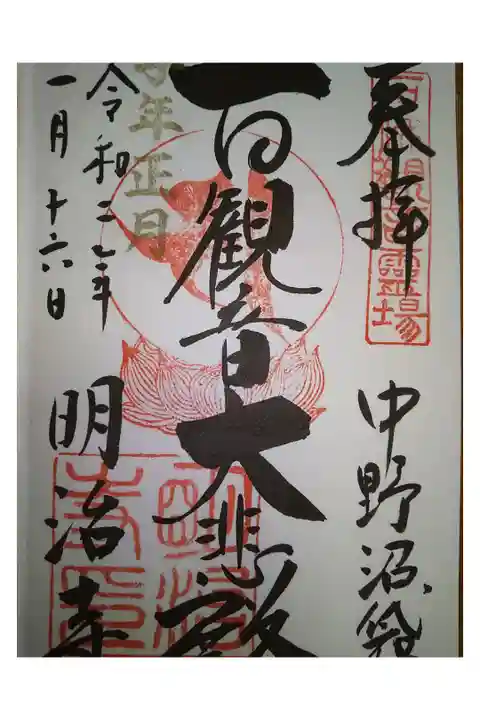 奉拝
中野沼袋
百観音霊場
百観音大悲殿
子年正月
令和二年
一月十六日
明治寺